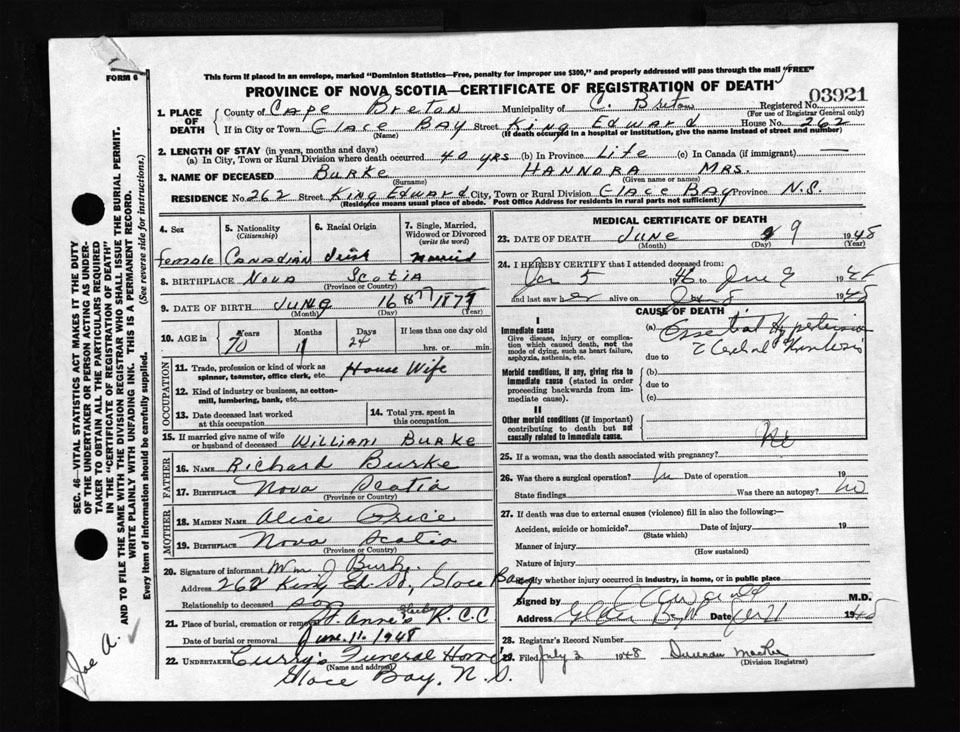 FORM 6
This form if placed in an envelope, marked "Dominion Statistics—Free, penalty for improper use $300," and properly addressed will pass through the mail "FREE"
PROVINCE OF NOVA SCOTIA—CERTIFICATE OF REGISTRATION OF DEATH
03921
1. PLACE OF DEATH County of Cape Breton Municipality of C. Breton Registered No.
(For use of Registrar General only)
If in City or Town Glace Bay Street King Edward House No. 262
(Name) (If death occurred in a hospital or institution, give the name instead of street and number)
2. LENGTH OF STAY (in years, months and days)
(a) In City, Town or Rural Division where death occurred 40 yrs (b) In Province Life (c) In Canada (if immigrant) —
3. NAME OF DECEASED Burke Hannora Mrs.
(Surname) (Given name or names)
RESIDENCE No. 262 Street King Edward City, Town or Rural Division Glace Bay Province N.S.
(Residence means usual place of abode. Post Office Address for residents in rural parts not sufficient)
4. Sex 5. Nationality 6. Racial Origin 7. Single, Married, Widowed or Divorced
(Citizenship) (write the word)
female Canadian Irish married
8. BIRTHPLACE Nova Scotia
(Province or Country)
9. DATE OF BIRTH June 16
(Month) (Day) (Year)
10. AGE in Years Months Days If less than one day old
70 11 24 hrs. or min.
OCCUPATION
11. Trade, profession or kind of work as spinner, teamster, office clerk, etc. House Wife
12. Kind of industry or business, as cotton-mill, lumbering, bank, etc.
13. Date deceased last worked at this occupation
14. Total yrs. spent in this occupation
15. If married give name of wife or husband of deceased William Burke
FATHER
16. NAME Richard Burke
17. BIRTHPLACE Nova Scotia
(Province or Country)
MOTHER
18. MAIDEN NAME Alice Price
19. BIRTHPLACE Nova Scotia
(Province or Country)
20. Signature of informant Wm J Burke
Address 262 King Ed. St, Glace Bay
Relationship to deceased son
21. Place of burial, cremation or removal St. Anne's R.C.C
Date of burial or removal June. 11. 1948
22. UNDERTAKER Curry's Funeral Home
(Name and address)
Glace Bay, N.S.
MEDICAL CERTIFICATE OF DEATH
23. DATE OF DEATH June 9 1948
(Month) (Day) (Year)
24. I HEREBY CERTIFY that I attended deceased from:
Jan 5 46 to June 9 1948
and last saw her alive on June 8 1948
CAUSE OF DEATH
I
Immediate cause
Give disease, injury or complication which caused death, not the mode of dying, such as heart failure, asphyxia, asthenia, etc.
(a) Essential Hypertension
due to
Morbid conditions, if any, giving rise to immediate cause (stated in order proceeding backwards from immediate cause).
(b)
due to
(c)
II
Other morbid conditions (if important) contributing to death but not causally related to immediate cause.
25. If a woman, was the death associated with pregnancy? No
26. Was there a surgical operation? No Date of operation 19
State findings Was there an autopsy? No
27. If death was due to external causes (violence) fill in also the following:—
Accident, suicide or homicide? Date of injury 19
(State which)
Manner of injury
(How sustained)
Nature of injury
Specify whether injury occurred in industry, in home, or in public place
Signed by M.D.
Address Glace Bay Date 1948
28. Registrar's Record Number
29. Filed July 2 1948 Duncan
(Division Registrar)
SEC. 46—VITAL STATISTICS ACT MAKES IT THE DUTY OF THE UNDERTAKER OR PERSON ACTING AS UNDERTAKER TO OBTAIN ALL THE PARTICULARS REQUIRED IN THE "CERTIFICATE OF REGISTRATION OF DEATH" AND TO FILE THE SAME WITH THE DIVISION REGISTRAR WHO SHALL ISSUE THE BURIAL PERMIT.
WRITE PLAINLY WITH UNFADING INK. THIS IS A PERMANENT RECORD.
Every item of information should be carefully supplied. (See reverse side for instructions.)